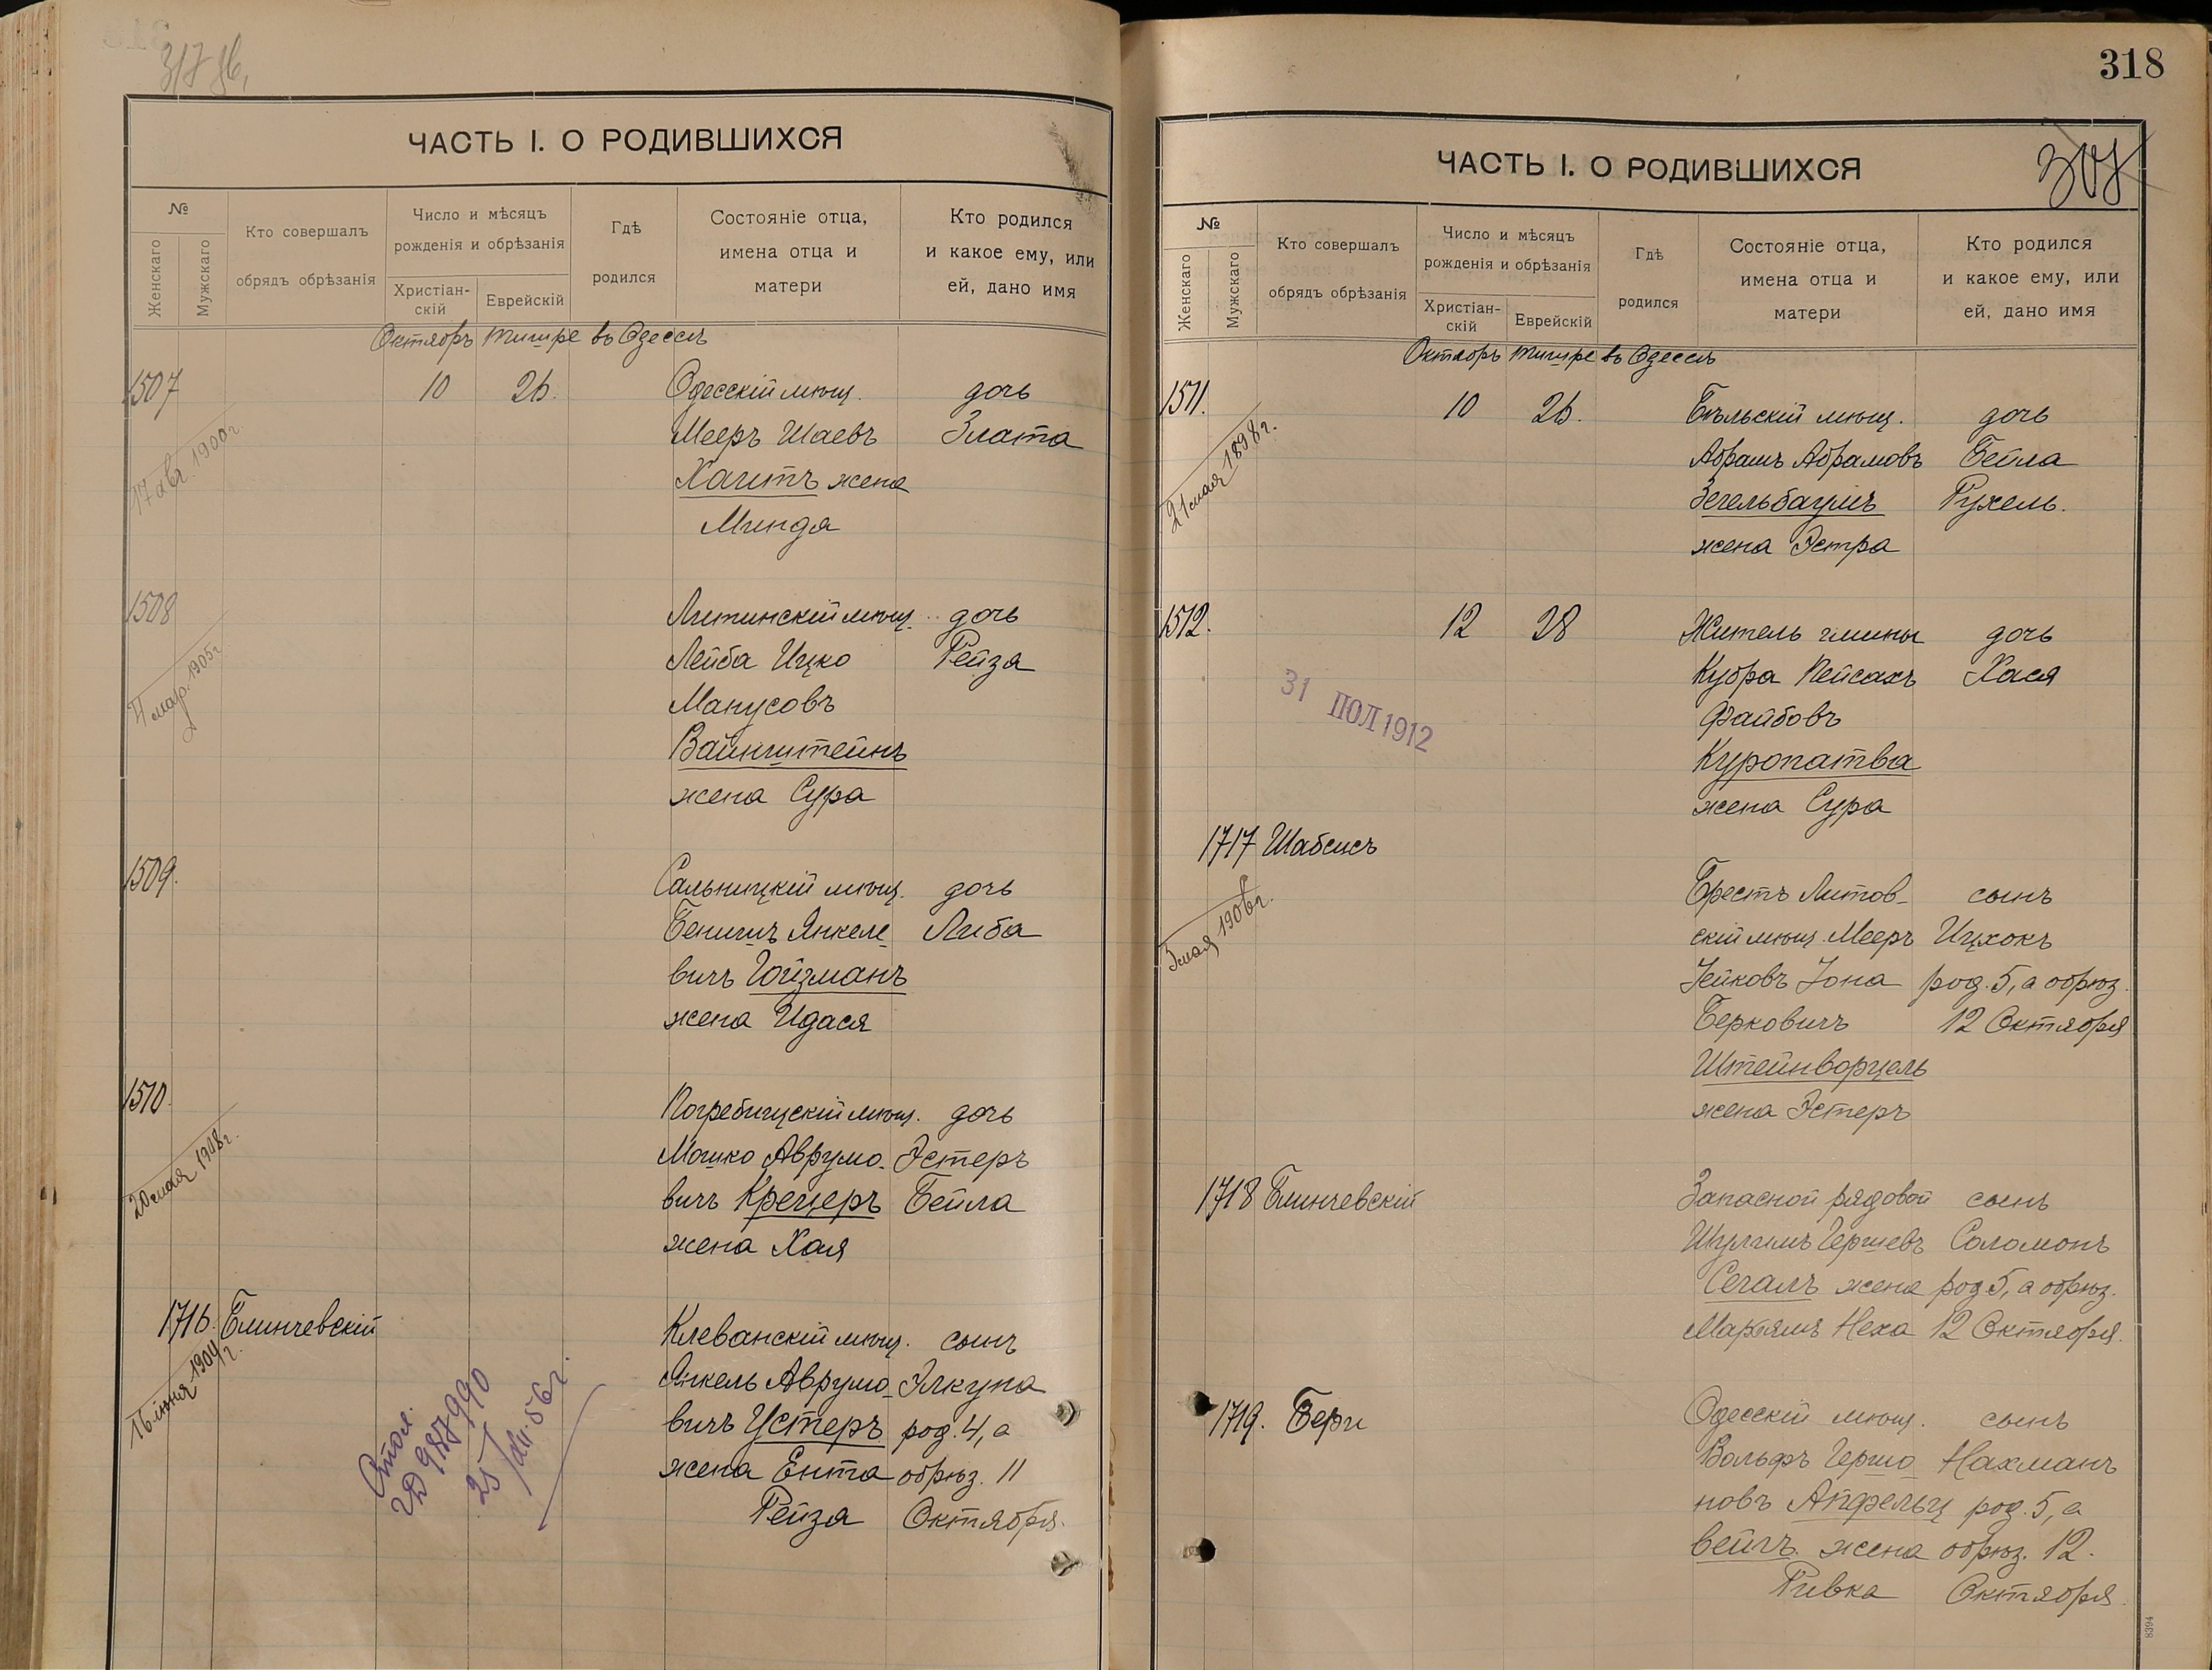 317 об.
ЧАСТЬ I. О РОДИВШИХСЯ
№
Женскаго
Мужскаго
Кто совершалъ
обрядъ обрѣзанія
Число и мѣсяцъ
рожденія и обрѣзанія
Христіан-
скій
Еврейскій
Гдѣ
родился
Состояніе отца,
имена отца и
матери
Кто родился
и какое ему, или
ей, дано имя
Октябрь Тишре въ Одессѣ
1507 10 26. Одесскій мѣщ. дочь
Мееръ Шаевъ Злата
17 авг. 1900г.
жена
Минда
1508 Литинскій мѣщ. дочь
Лейба Ицко Рейза
4 мар. 1905г.
Манусовъ
Вайнштейнъ
жена Сура
1509. Сальницкій мѣщ. дочь
Бенишъ Янкеле Либа
вичъ Гойзманъ
жена Идася
1510. Погребищскій мѣщ. дочь
Мошко Аврумо- Эстеръ
20 мая 1908г.
вичъ Крецеръ Бейла
жена Хая
1716. Блинчевскій Клеванскій мѣщ. сынъ
16 іюня 1904г.
Янкель Аврумо- Элкуна
вичъ Устеръ род. 4, а
жена Ента обрѣз. 11
Рейза Октября.
2Д 987990
318
307
ЧАСТЬ I. О РОДИВШИХСЯ
№
Женскаго
Мужскаго
Кто совершалъ
обрядъ обрѣзанія
Число и мѣсяцъ
рожденія и обрѣзанія
Христіан-
скій
Еврейскій
Гдѣ
родился
Состояніе отца,
имена отца и
матери
Кто родился
и какое ему, или
ей, дано имя
Октябрь Тишре въ Одессѣ
1511. 10 26. Бѣльскій мѣщ. дочь
21 мая 1898г.
Абрамъ Абрамовъ Бейла
Зегельбаумъ Рухель.
жена Эстра
1512. 12 28 Житель гмины дочь
Кубра Пейсахъ Хася
31 ІЮЛ 1912
Файбовъ
Куропатва
жена Сура
1717 Шабсисъ
Брестъ Литов- сынъ
3 мая 1906г.
скій мѣщ. Мееръ Ицхокъ
Іона род. 5, а обрѣз.
Берковичъ 12 Октября
Штейнворцель
жена Эстеръ
1718 Блинчевскій Запасной рядовой сынъ
Шулимъ Гершевъ Соломонъ
Сегалъ жена род 5, а обрѣз.
Марьямъ Неха 12 Октября.
1719. Бери Одесскій мѣщ. сынъ
Вольфъ Гершо- Нахманъ
новъ Апфельц род. 5, а
вейгъ жена обрѣз. 12.
Ривка Октября.
8394